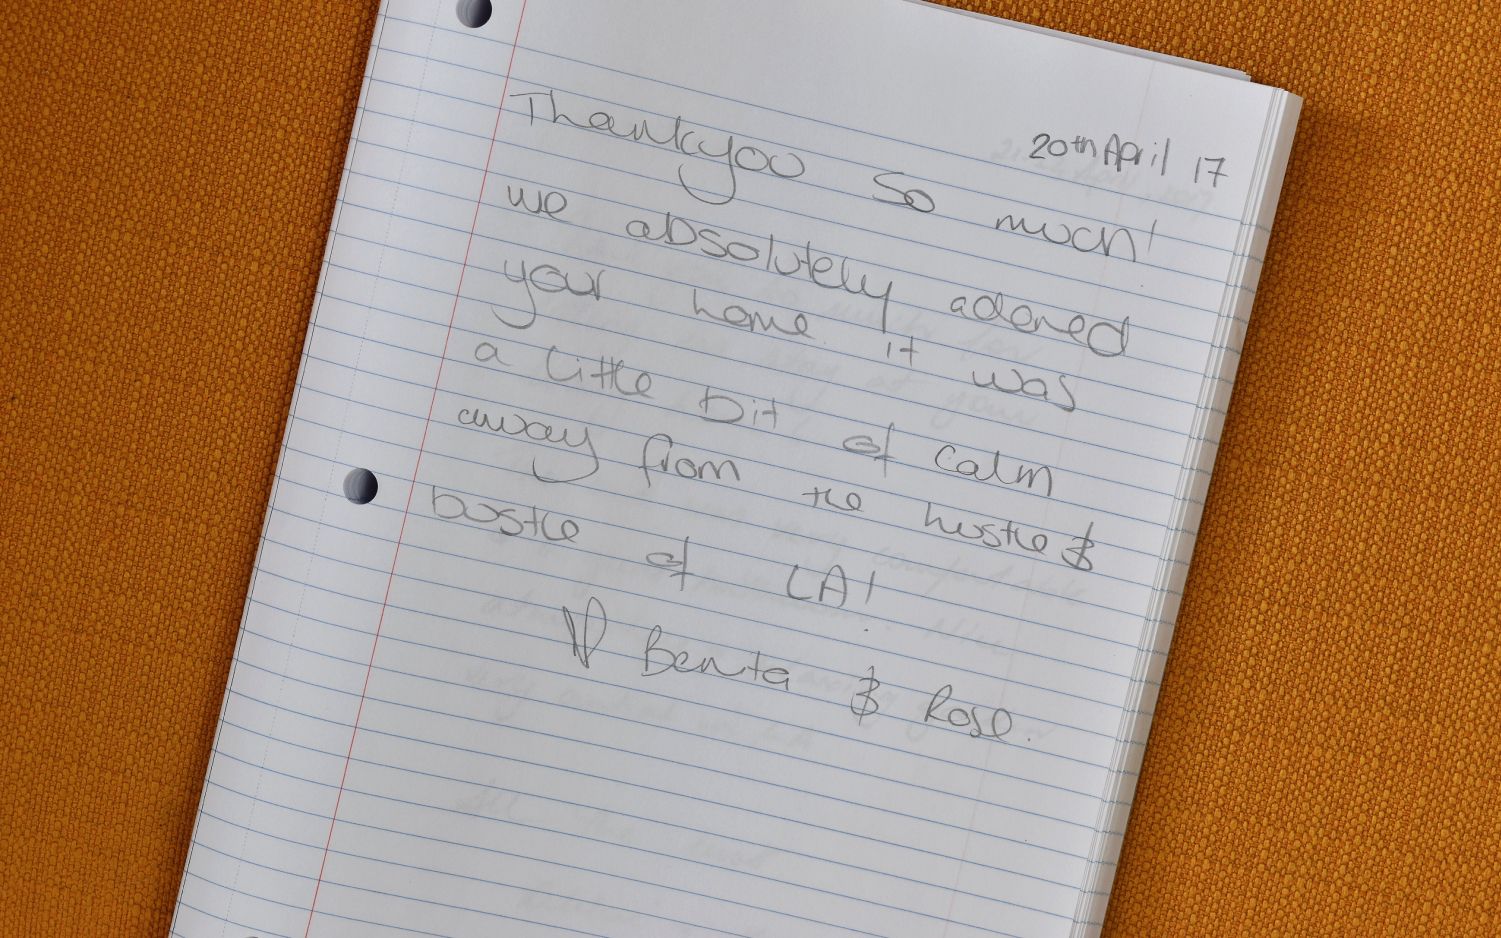 20th April 17
Thankyou so much!
we absolutely adored
your home it was
a little bit of calm
away from the hustle &
bustle of LA!
♡ Benita & Rose.